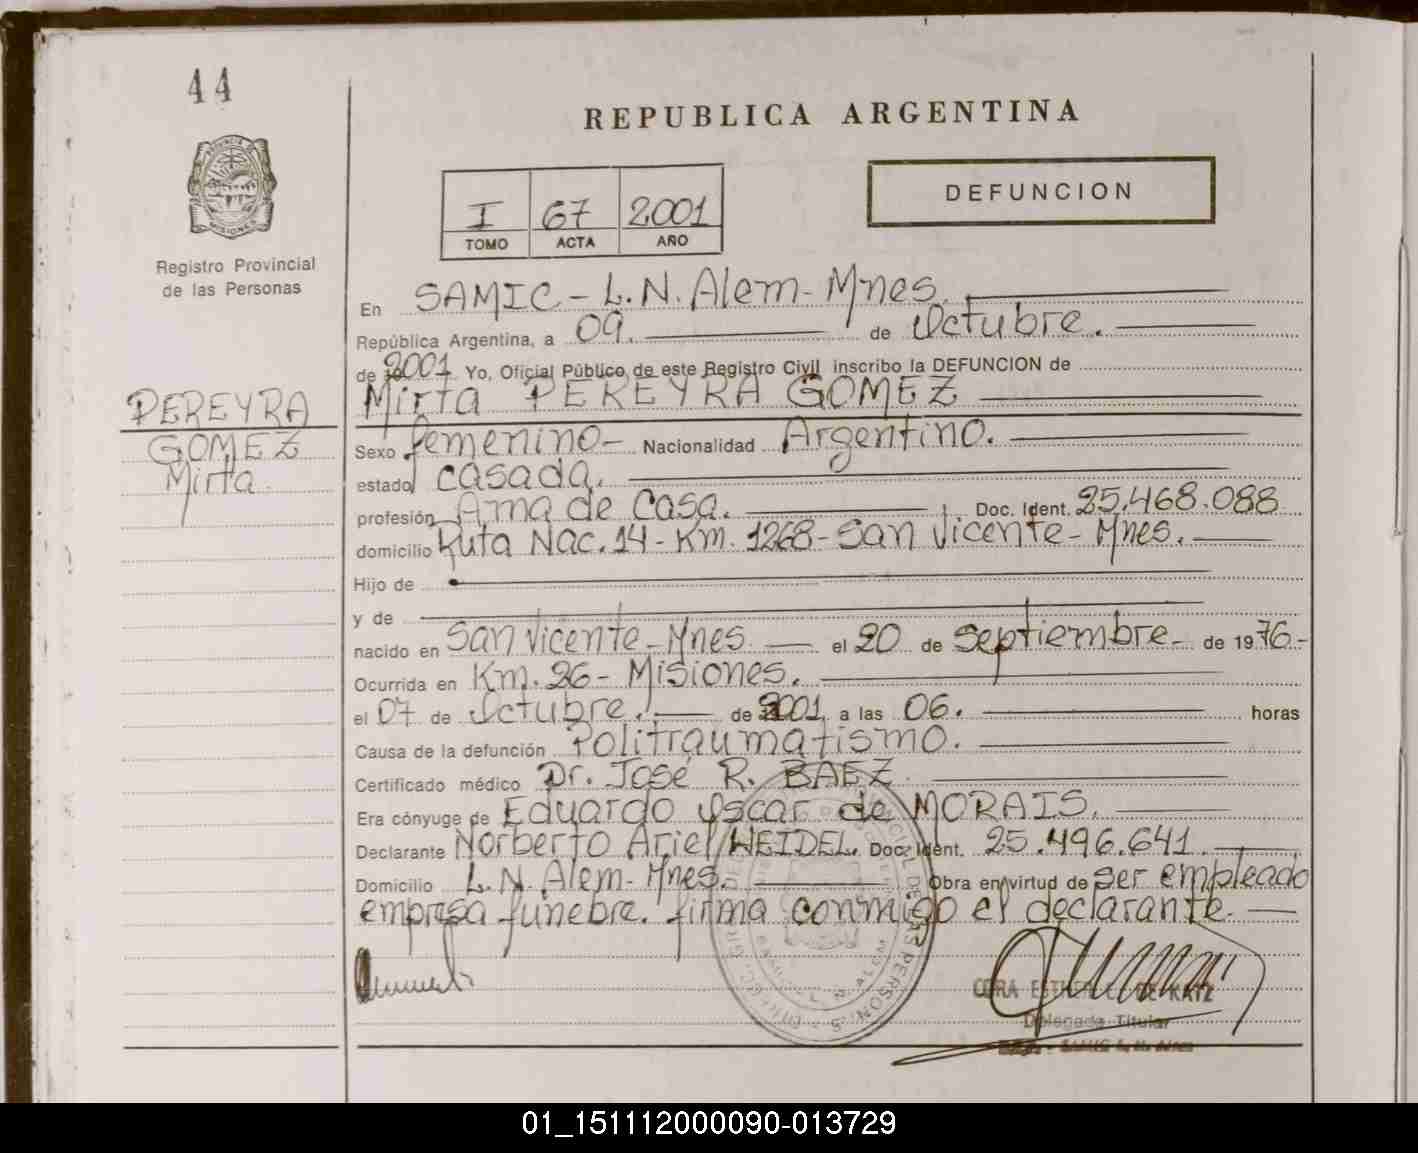 44
PROVINCIA DE
MISIONES
Registro Provincial
de las Personas
PEREYRA
GOMEZ
Mirta
REPUBLICA ARGENTINA
I 67 2001
TOMO ACTA AÑO
DEFUNCION
En SAMIC - L.N. Alem - Mnes.
República Argentina, a 09. de Octubre.
de 2001 Yo, Oficial Público de este Registro Civil inscribo la DEFUNCION de
Mirta PEREYRA GOMEZ
Sexo femenino - Nacionalidad Argentino.
estado casada.
profesión Ama de Casa. Doc. Ident. 25.468.088
domicilio Ruta Nac. 14 - Km. 1268 - San Vicente - Mnes.
Hijo de
y de
nacido en San Vicente - Mnes. el 20 de septiembre - de 1976.-
Ocurrida en Km. 26 - Misiones.
el 07 de Octubre. de 2001 a las 06. horas
Causa de la defunción Politraumatismo.
Certificado médico Dr. José R. BAEZ
Era cónyuge de Eduardo Oscar de MORAIS.
Declarante Norberto Ariel HEIDEL. Doc. Ident. 25.496.641
Domicilio L.N. Alem - Mnes. Obra en virtud de ser empleado
empresa fúnebre. firma conmigo el declarante.
DE KATZ
Delegada Titular
01_151112000090-013729